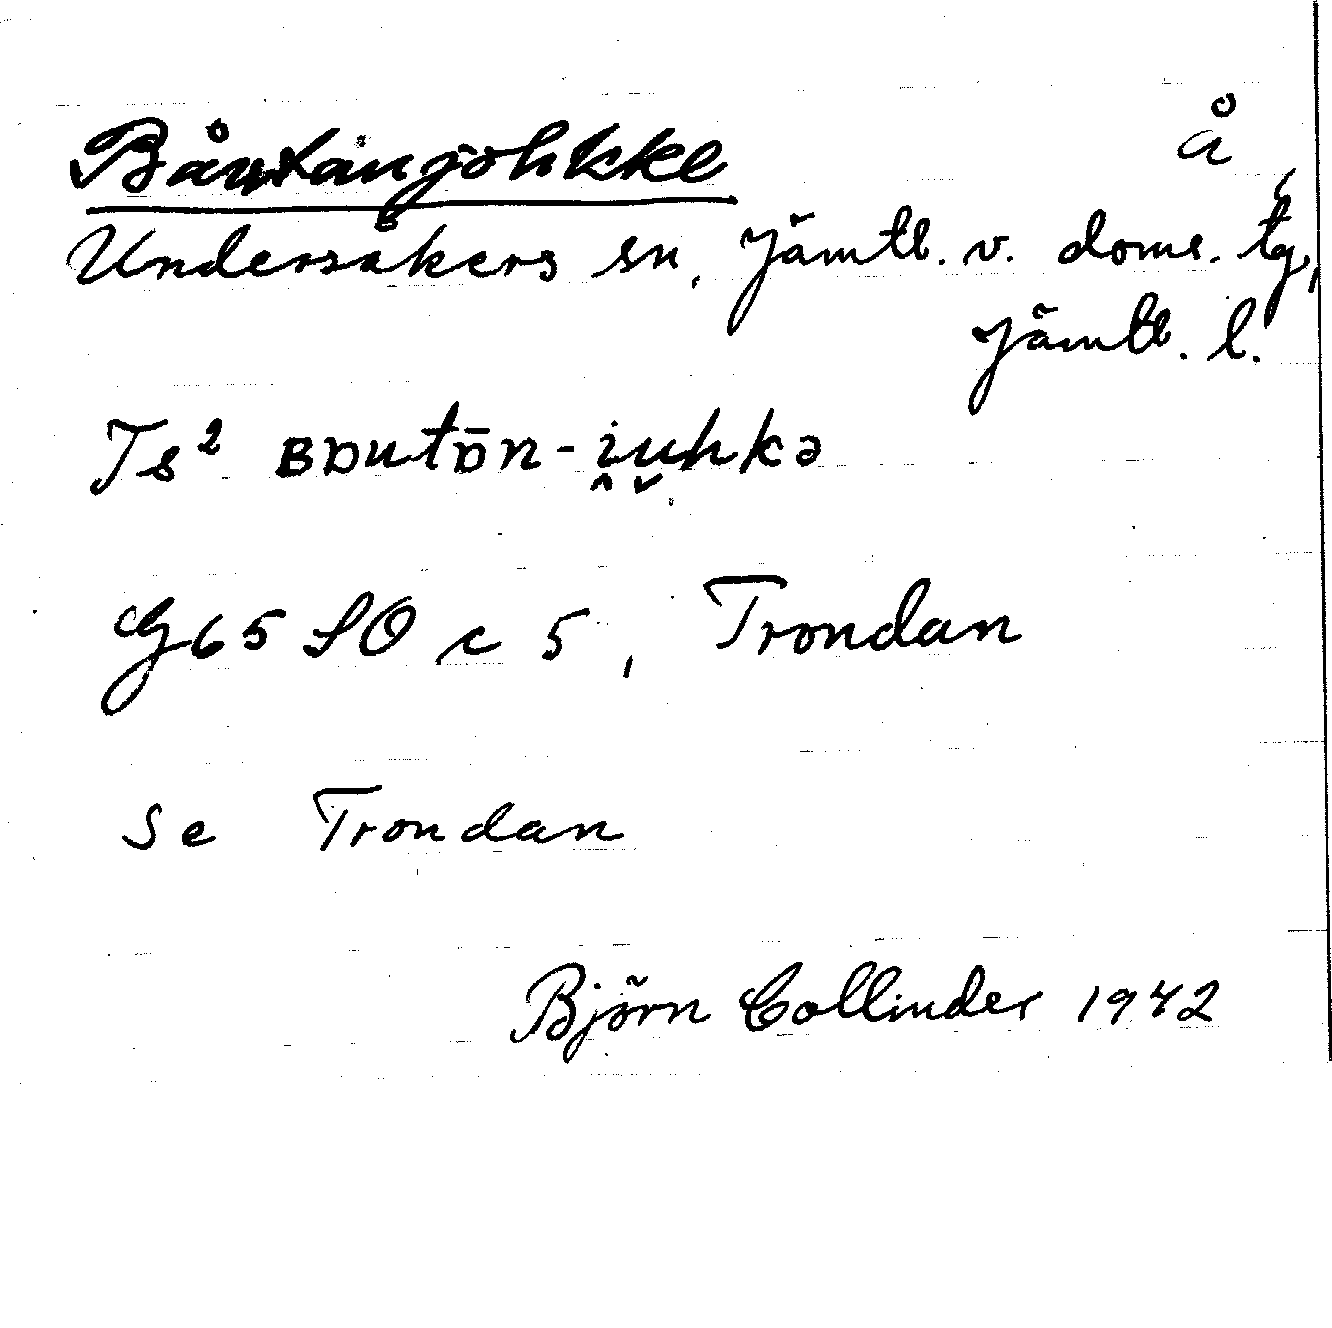 Båutånjohkke å
Undersåkers sn, Jämtl. v. doms. tg,
Jämtl. l.
Ts² ʙɒutɒ̄n-i̭u̬hkə
G65 SO c 5, Trondan
Se Trondan
Björn Collinder 1942